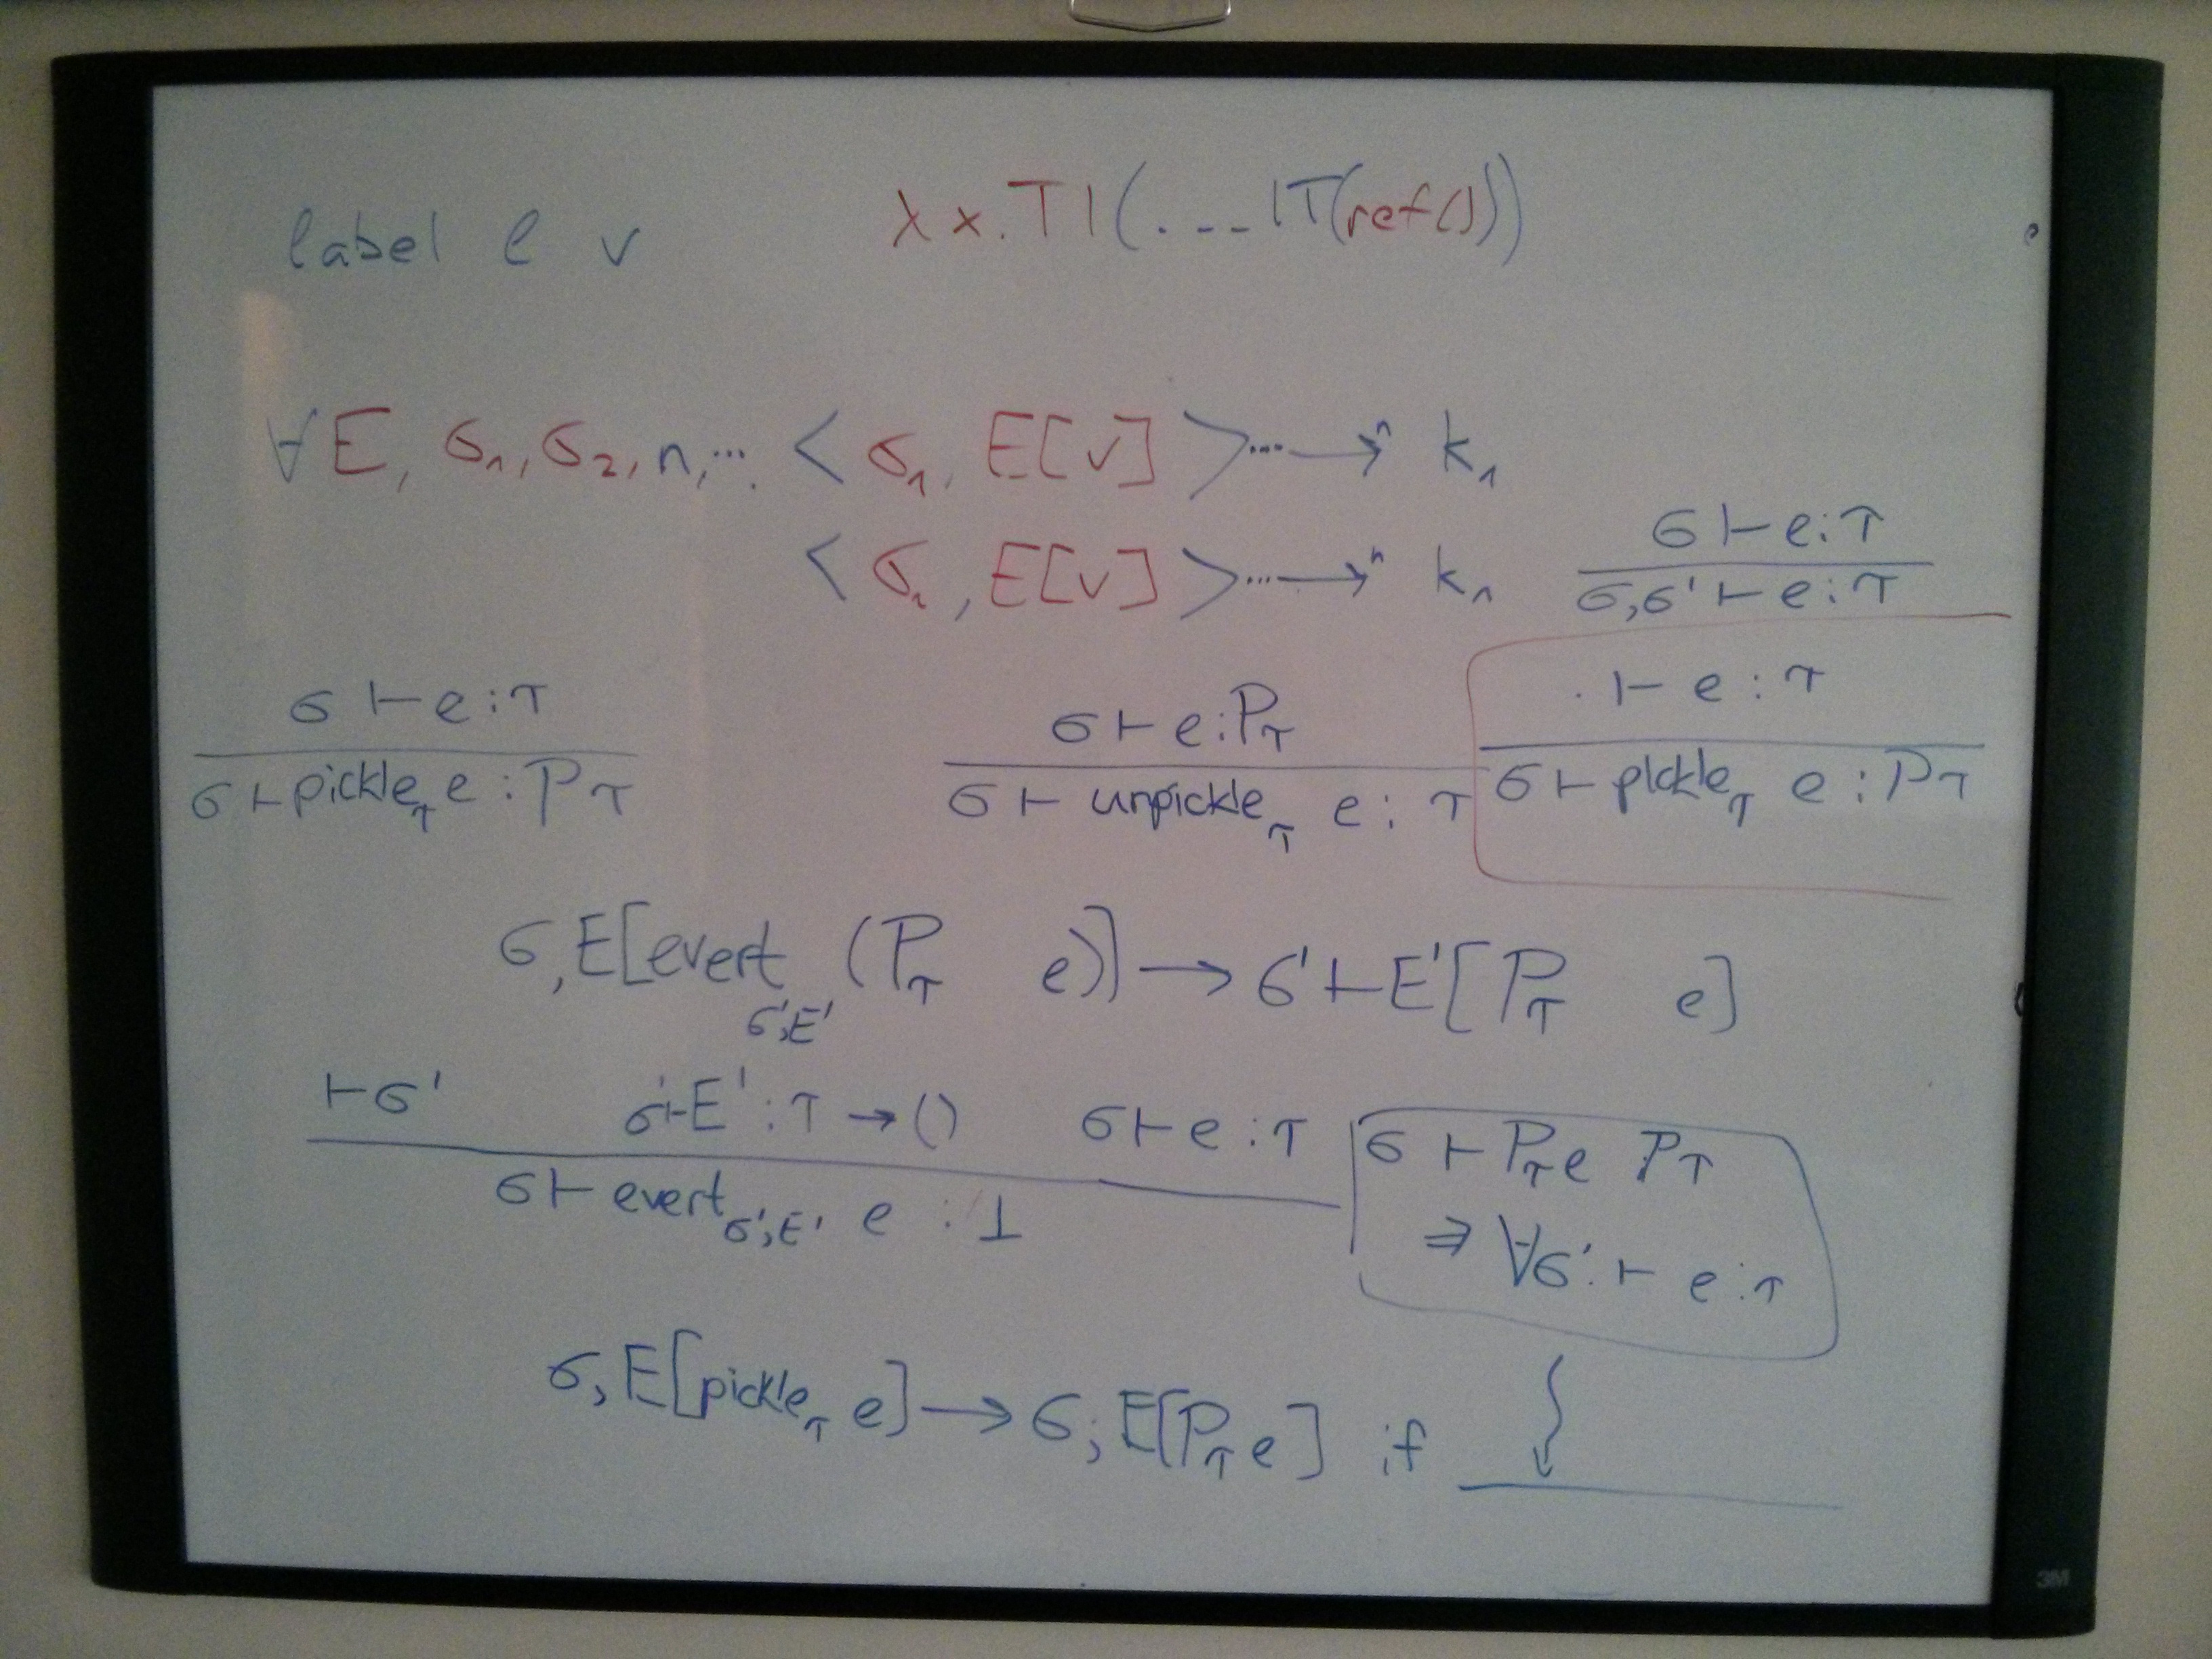 label ℓ v λx.TI(...IT(ref()))
∀E, σ₁,σ₂,n,... <σ₁, E[v]>...→ⁿ k₁
<σ₂, E[v]>...→ⁿ k₁
σ ⊢ e:τ
σ,σ' ⊢ e:τ
σ ⊢ e:τ
σ ⊢ pickle_τ e : Pτ
σ ⊢ e:Pτ
σ ⊢ unpickle_τ e : τ
· ⊢ e : τ
σ ⊢ pickle_τ e : Pτ
σ,E[evert_σ',E' (P_τ e)] → σ' ⊢ E'[P_τ e]
⊢σ' σ'⊢E' : τ → () σ ⊢ e : τ
σ ⊢ evert_σ',E' e : ⊥
σ ⊢ P_τ e Pτ
⇒ ∀σ'. ⊢ e : τ
σ,E[pickle_τ e] → σ;E[P_τ e] if
3M